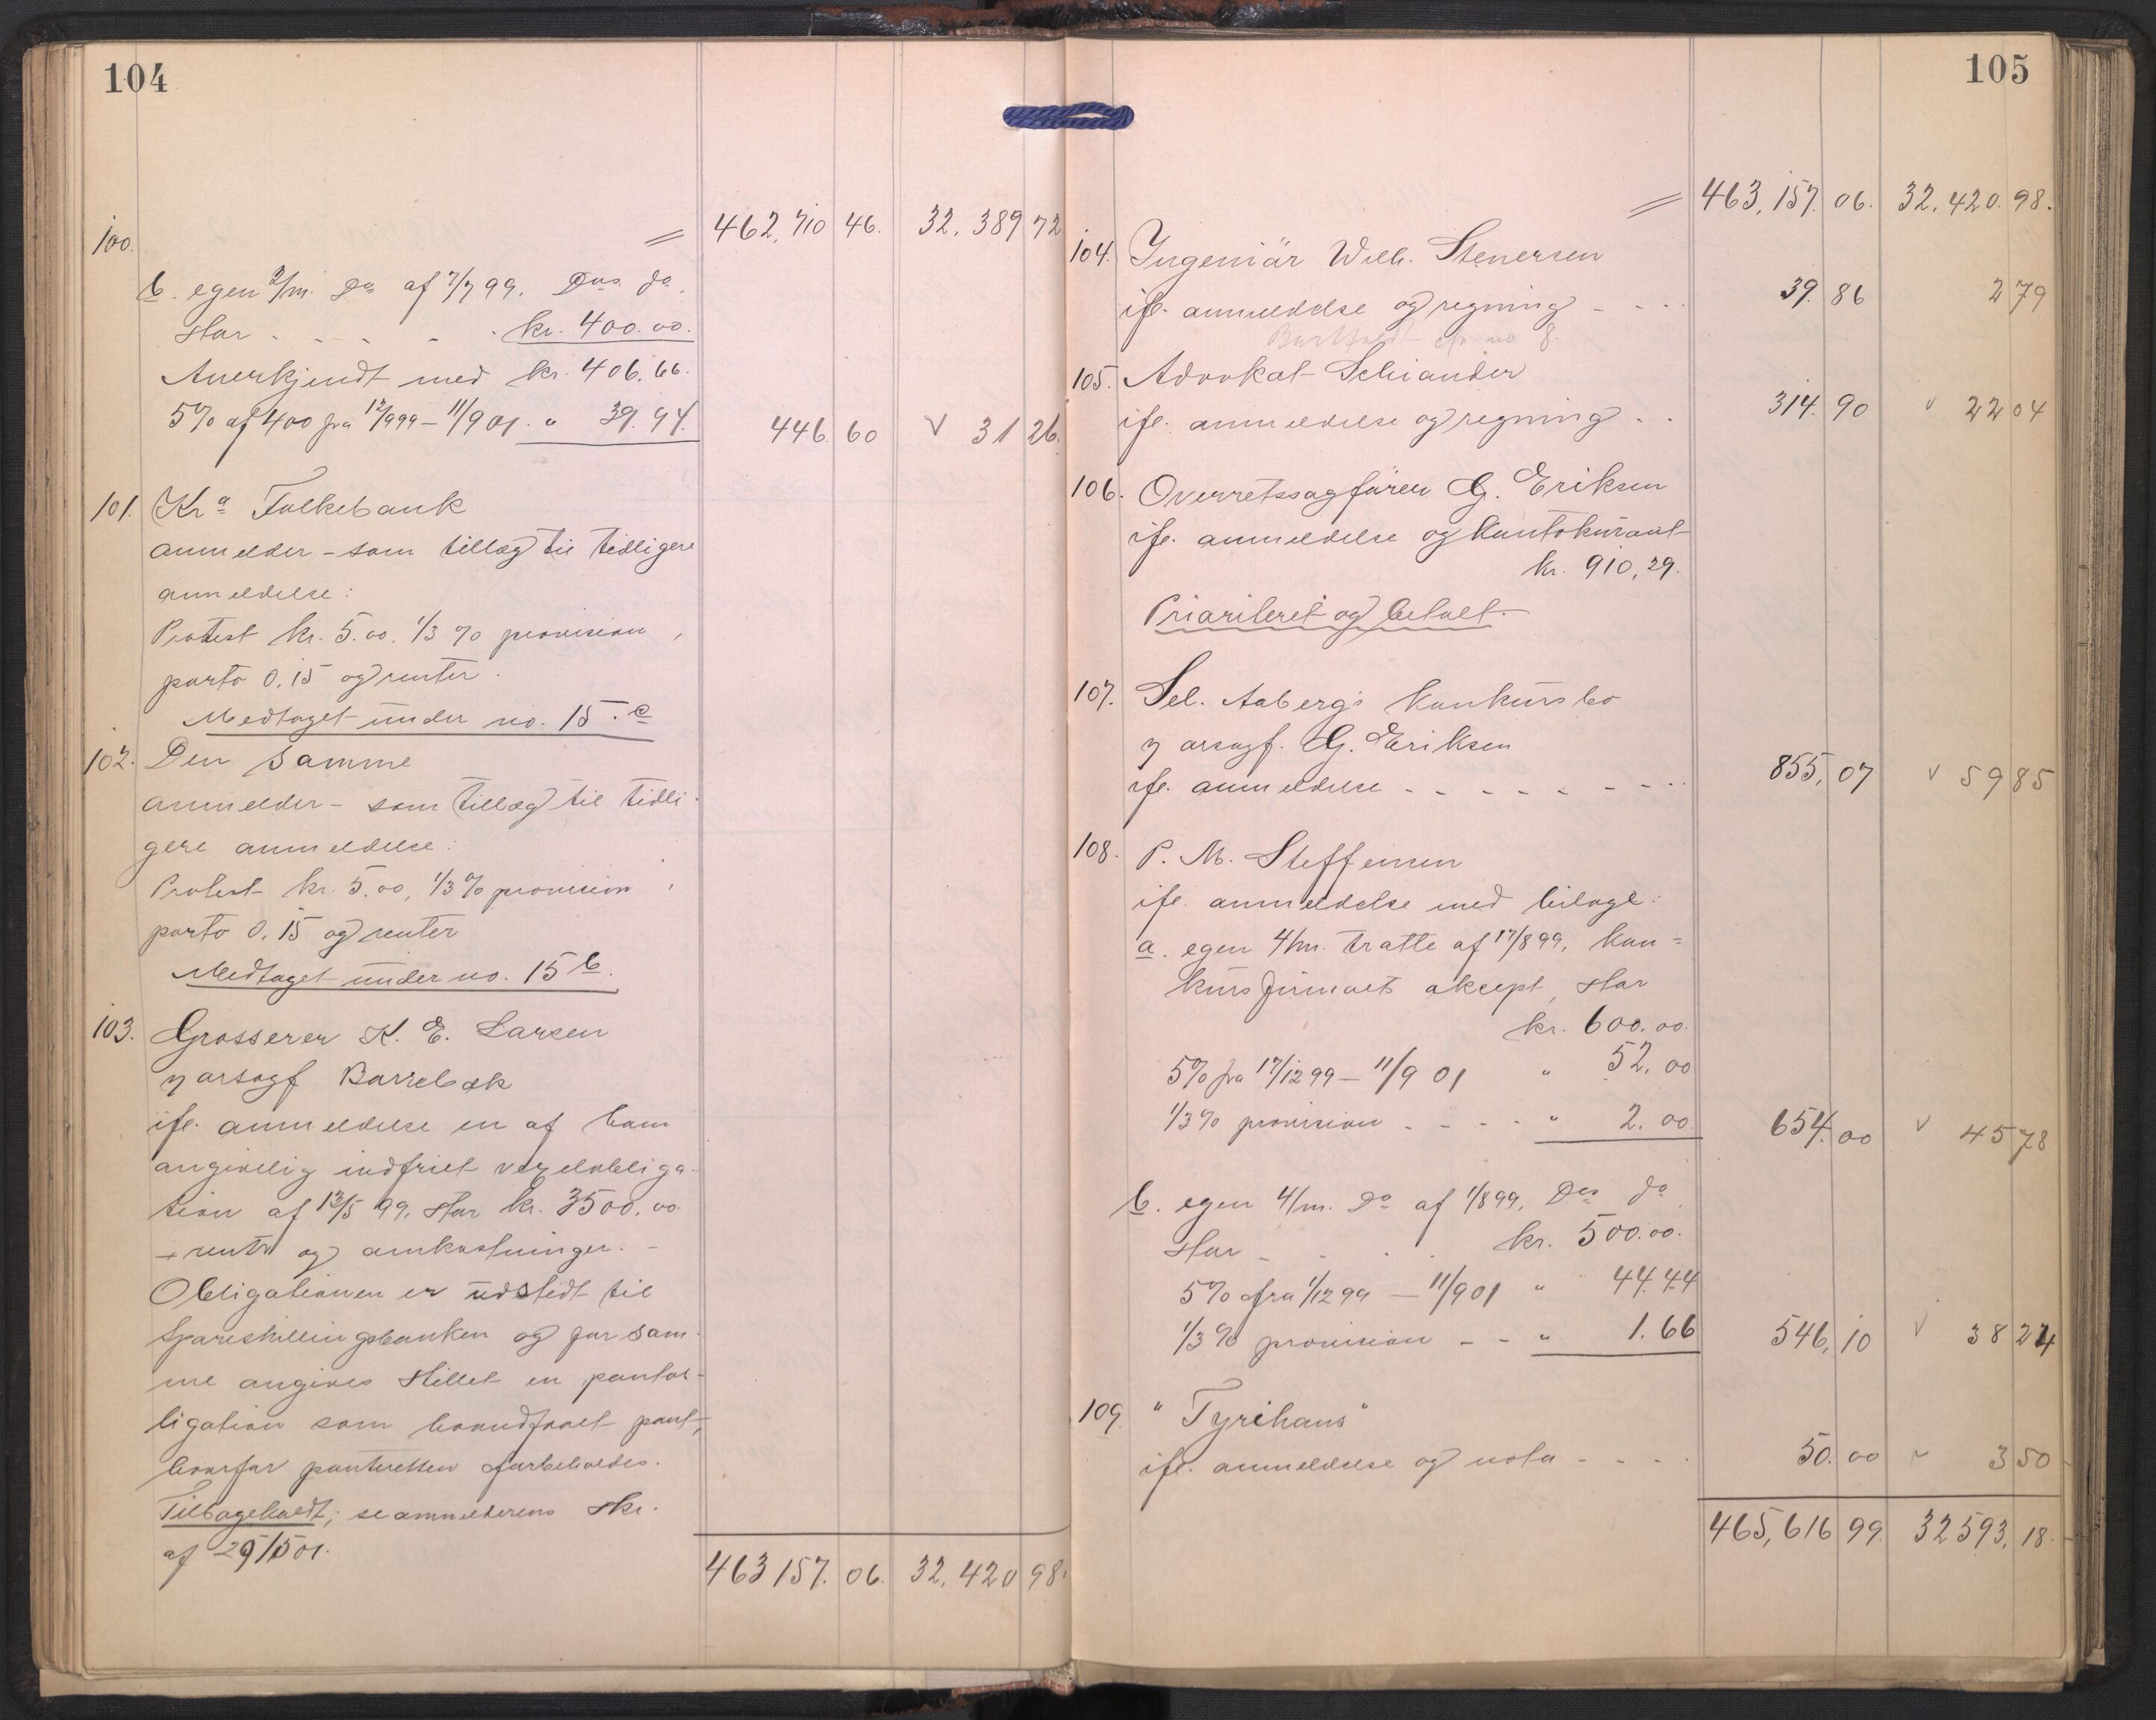 104
100.
= 462,710 46. 32,389 72
b. egen 2/m. Do af 7/7 99. Dos do.
stor . - - - . kr. 400.00.
Anerkjendt med kr. 406.66.
5% af 400 fra 12/9 99 – 11/9 01. " 39.94. 446.60 V 31 26.
101. Kra Folkebank
anmelder – som tillæg til tidligere
anmeldelse:
Protest kr. 5.00. 1/3 % provision,
porto 0.15 og renter.
Medtaget under no. 15.c
102. Den samme
anmelder – som tillæg til tidli-
gere anmeldelse:
Protest kr. 5.00, 1/3 % provision,
porto 0.15 og renter
Medtaget under no. 15 b.
103. Grosserer K. E. Larsen
v orsagf Borrebæk
ifl. anmeldelse en af ham
angivelig indfriet vexelobliga-
tion af 12/5 99, stor kr. 3500.00.
+ renter og omkostninger. -
Obligationen er udstedt til
Spareskillingsbanken og for sam-
me angives stillet en pantob-
ligation som haandfaaet pant,
hvorfor panteretten forbeholdes.
Tilbageholdt; se anmelderens skr.
af 29/5 01.
463 157. 06. 32,420 98.
105
= 463,157. 06. 32,420. 98.
104. Ingeniär Wilh. Stenersen
ifl. anmeldelse og regning - - - 39. 86 2 79
cfr no 8.
105. Advokat Schiander
ifl. anmeldelse og regning . . 314. 90 v 22 04
106. Overretssagförer G. Eriksen
ifl. anmeldelse og kontokurant
kr. 910,29.
Prioriteret og betalt.
107. Sel. Aabergs konkursbo
v orsagf. G. Eriksen
ifl. anmeldelse - - - - - - - 855,07 v 59 85
108. P. M. Steffensen
ifl. anmeldelse med bilage:
a. egen 4/m. tratte af 17/8 99, kon=
kursfirmaets aksept, stor
kr. 600.00.
5% fra 17/12 99 – 11/9 01 " 52.00
1/3 % provision - - - - " 2.00 654.00 v 45 78
b. egen 4/m. Do af 1/8 99. Dos do.
stor - - . . kr. 500.00.
5% fra 1/12 99 – 11/9 01 " 44.44
1/3 % provision - - " 1.66 546,10 V 38 24
109. "Tyrihans"
ifl. anmeldelse og nota - - - . 50.00 v 3 50
465,616 99. 32593,18.